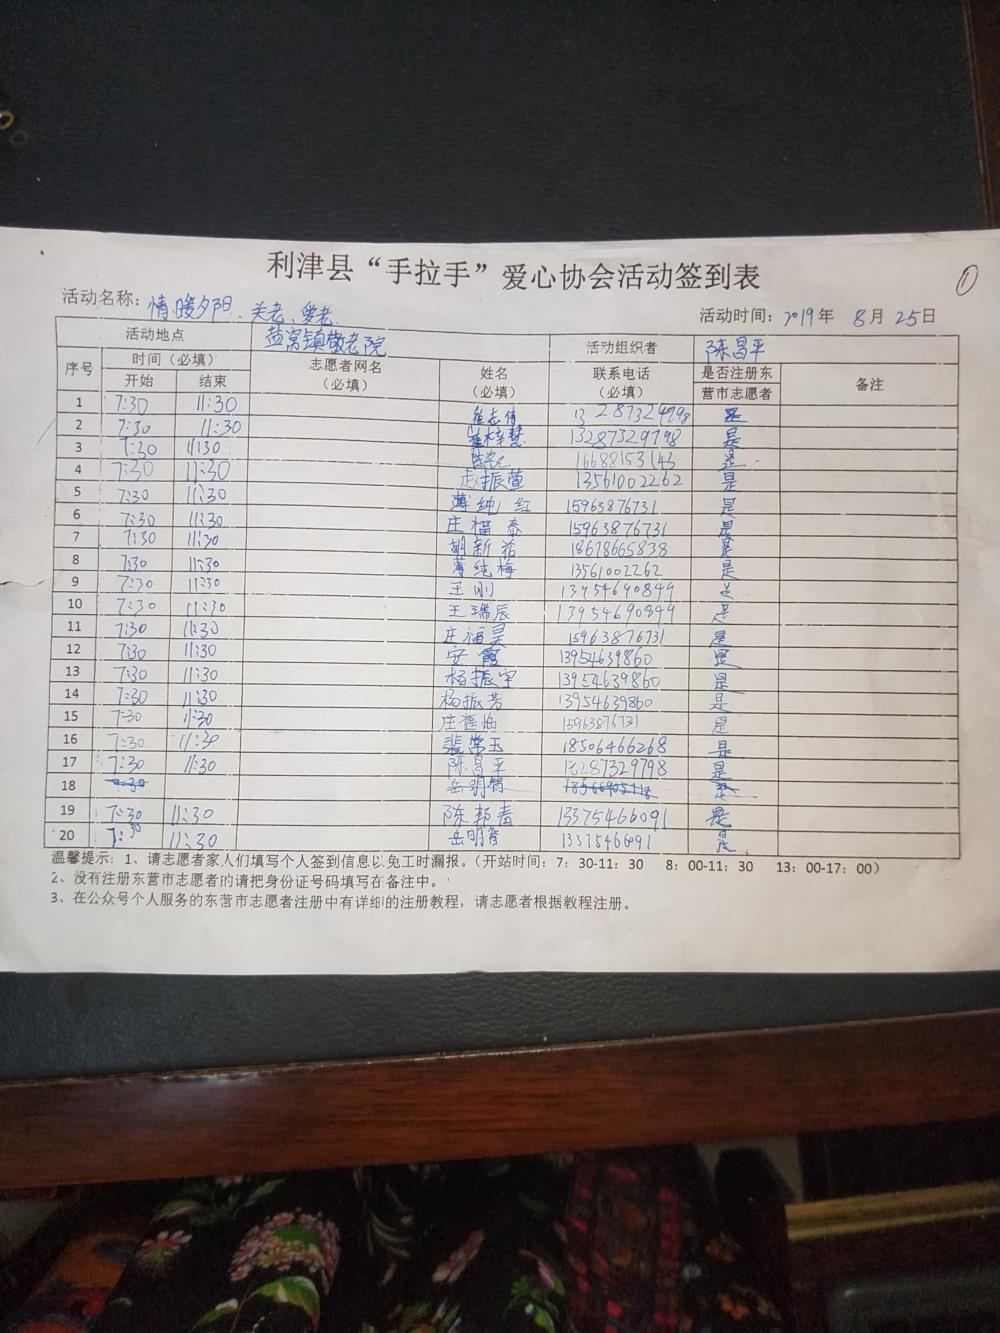 利津县“手拉手”爱心协会活动签到表
①
活动名称：情暖夕阳、关老、爱老
活动时间：2019年 8月25日
活动地点 盐窝镇敬老院 活动组织者 陈昌平
序号 时间（必填） 志愿者网名（必填） 姓名（必填） 联系电话（必填） 是否注册东营市志愿者 备注
开始 结束
1 7:30 11:30 13287329798 是
2 7:30 11:30 13287329798 是
3 7:30 11:30 16688153143 是
4 7:30 11:30 赵振萱 13561002262 是
5 7:30 11:30 薄纯红 15963876731 是
6 7:30 11:30 庄福泰 15963876731 是
7 7:30 11:30 胡新花 18678665838 是
8 7:30 11:30 薄纯梅 13561002262 是
9 7:30 11:30 王刚 13954690849 是
10 7:30 11:30 王瑞辰 13954690849 是
11 7:30 11:30 庄福昊 15963876731 是
12 7:30 11:30 安霞 13954639860 是
13 7:30 11:30 杨振宇 13954639860 是
14 7:30 11:30 杨振芳 13954639860 是
15 7:30 11:30 15963876731 是
16 7:30 11:30 裴常玉 18506466268 是
17 7:30 11:30 陈昌平 13287329798 是
18 7:30 是
19 7:30 11:30 陈邦青 13375466091 是
20 7:30 11:30 13375466091 是
温馨提示：1、请志愿者家人们填写个人签到信息以免工时漏报。（开站时间：7：30-11：30 8：00-11：30 13：00-17：00）
2、没有注册东营市志愿者的请把身份证号码填写在备注中。
3、在公众号个人服务的东营市志愿者注册中有详细的注册教程，请志愿者根据教程注册。